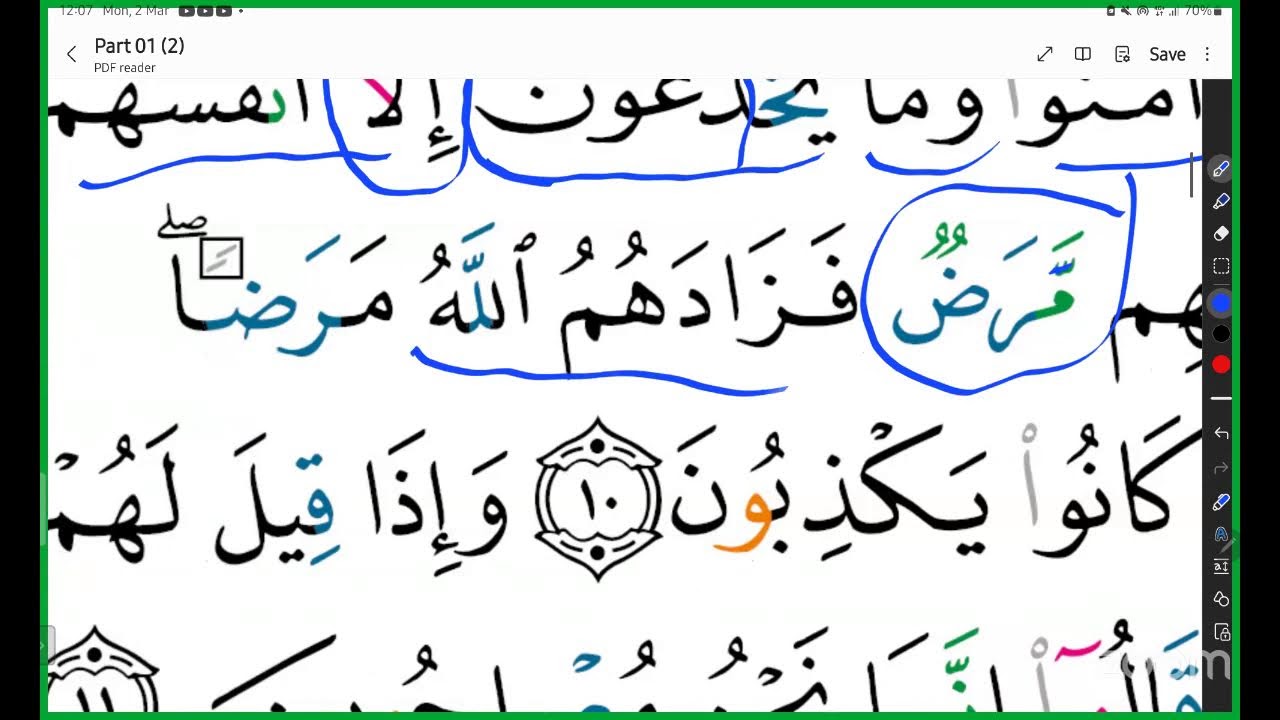 12:07 Mon, 2 Mar
70%
Part 01 (2)
PDF reader
Save
ءامنوا۟ وما يخدعون إلا أنفسهم
هِم مَّرَضٌ فَزَادَهُمُ ٱللَّهُ مَرَضًا ۖ
كَانُوا۟ يَكْذِبُونَ ١٠ وَإِذَا قِيلَ لَهُمْ
١١
zoom